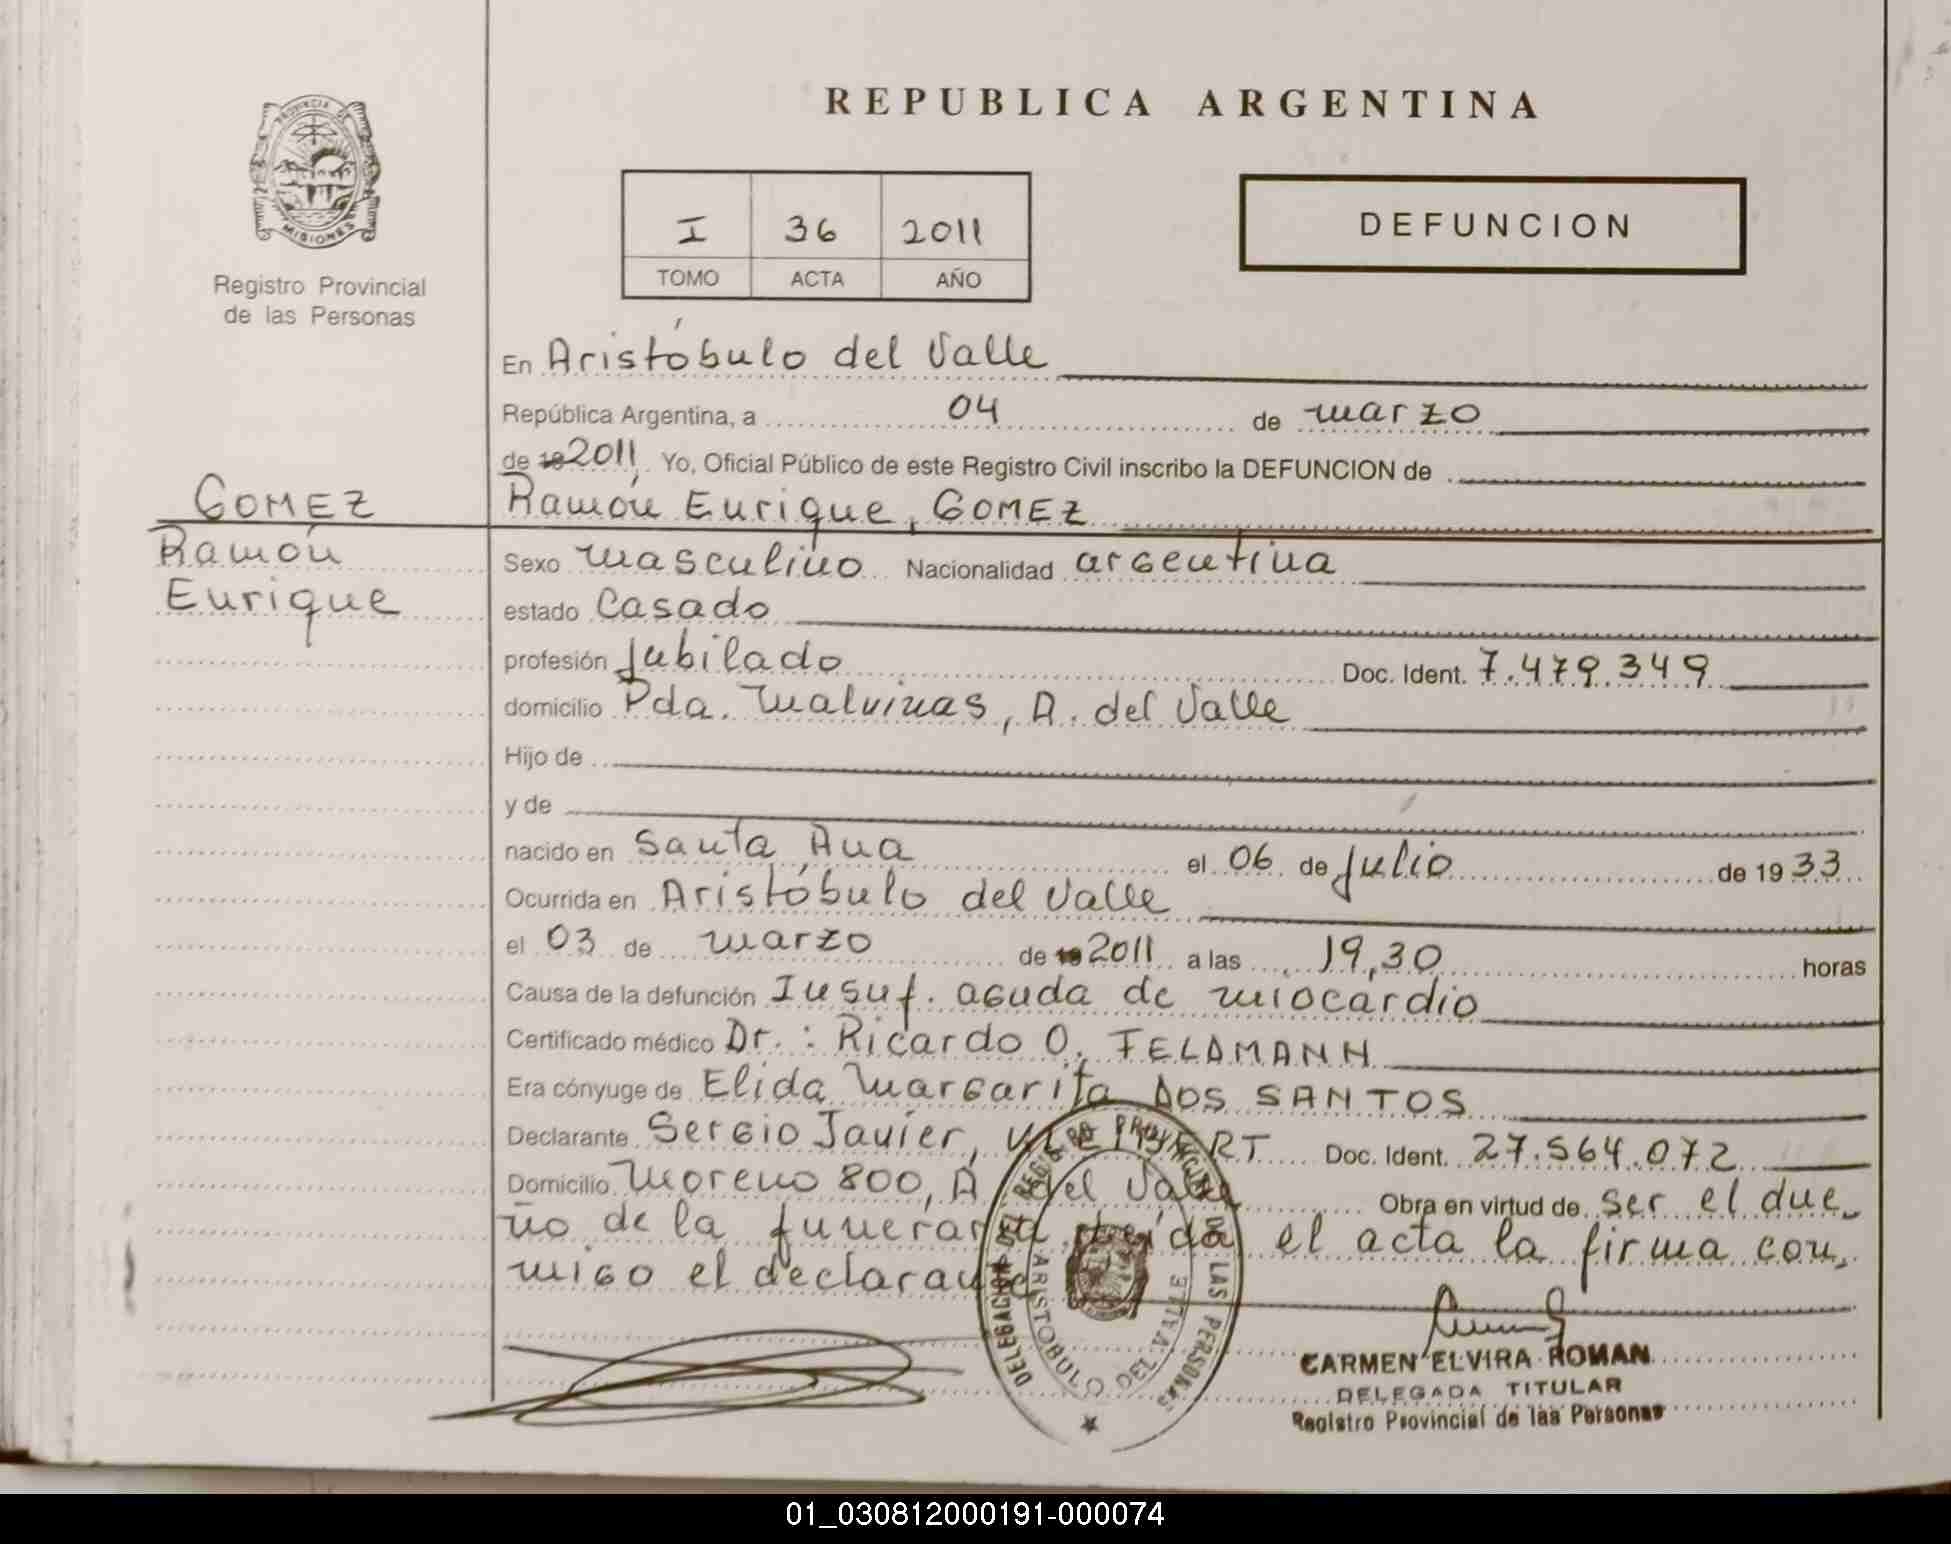 REPUBLICA ARGENTINA
PROVINCIA DE
MISIONES
Registro Provincial
de las Personas
I 36 2011
TOMO ACTA AÑO
DEFUNCION
En Aristóbulo del Valle
República Argentina, a 04 de marzo
de 19 2011 Yo, Oficial Público de este Registro Civil inscribo la DEFUNCION de
GOMEZ
Ramón Enrique, GOMEZ
Ramón
Enrique
Sexo masculino Nacionalidad argentina
estado Casado
profesión Jubilado Doc. Ident. 7.479.349
domicilio Pda. Malvinas, A. del Valle
Hijo de
y de
nacido en Santa Ana el 06 de Julio de 1933
Ocurrida en Aristóbulo del Valle
el 03 de marzo de 19 2011 a las 19,30 horas
Causa de la defunción Insuf. aguda de miocardio
Certificado médico Dr.: Ricardo O. FELDMANN
Era cónyuge de Elida Margarita DOS SANTOS
Declarante Sergio Javier, Doc. Ident. 27.564.072
Domicilio Moreno 800, A del Valle Obra en virtud de ser el due-
ño de la funeraria leída el acta la firma con,
migo el declarante
DELEGACION DEL REGISTRO PROVINCIAL DE LAS PERSONAS
ARISTOBULO DEL VALLE
CARMEN ELVIRA ROMAN
DELEGADA TITULAR
Registro Provincial de las Personas
01_030812000191-000074